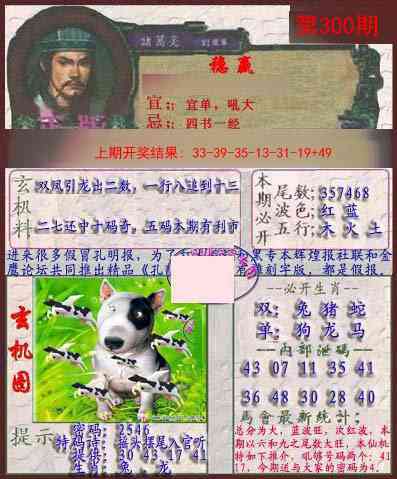 第300期
諸葛亮
稳赢
宜;: 宜单,吼大
忌;: 四书一经
上期开奖结果: 33-39-35-13-31-19+49
玄机料
双凤引龙出二数,一行八追到十三
二七还中十码奇,五码本期有刹市
本期必开
尾数:357468
波色:红 蓝
五行:木 火 土
进来很多假冒孔明报,为了
黑专本辉煌报社联和金
鹰论坛共同推出精品《孔
雕刻字版,都是假报。
玄机图
--必开生肖--
双: 兔 猪 蛇
单: 狗 龙 马
--内部泄码--
43 07 11 35 41
36 48 30 28 40
馬會最新统计:
总分为大,蓝波旺,次红波,本
期以六和九之尾数大旺,本仙机
特如下推介,吼够号码两个:41
17,今期送与大家的密码为4.
提示
密码: 2546
特码诗: 摇头摆尾入官听
提供: 30 43 17 41
生肖: 兔 , 龙